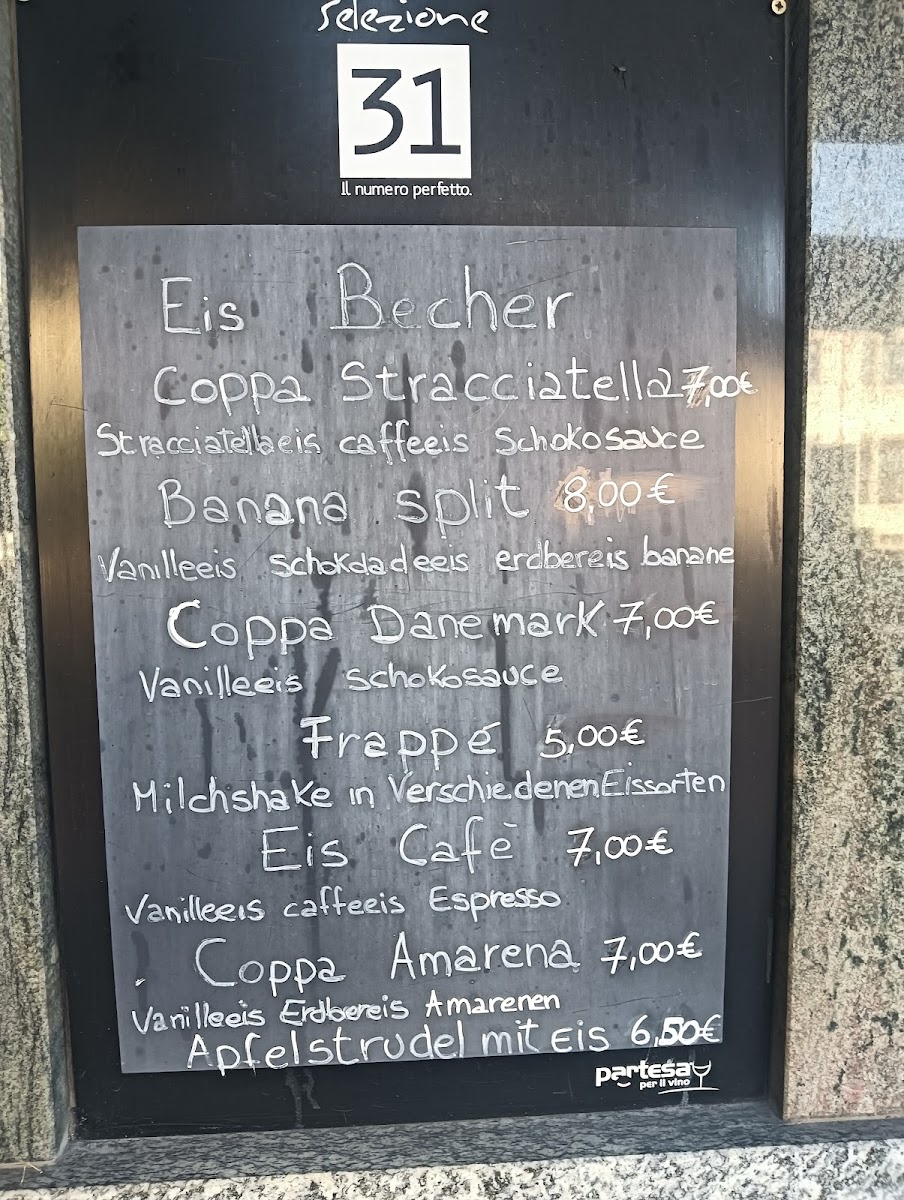 selezione
31
Il numero perfetto.
Eis Becher
Coppa Stracciatella 7,00€
Stracciatellaeis caffeeis Schokosauce
Banana split 8,00€
Vanilleeis Schokoladeeis erdbereis banane
Coppa Danemark 7,00€
Vanilleeis schokosauce
Frappé 5,00€
Milchshake in Verschiedenen Eissorten
Eis Cafè 7,00€
Vanilleeis caffeeis Espresso
Coppa Amarena 7,00€
Vanilleeis Erdbereis Amarenen
Apfelstrudel mit Eis 6,50€
partesa
per il vino